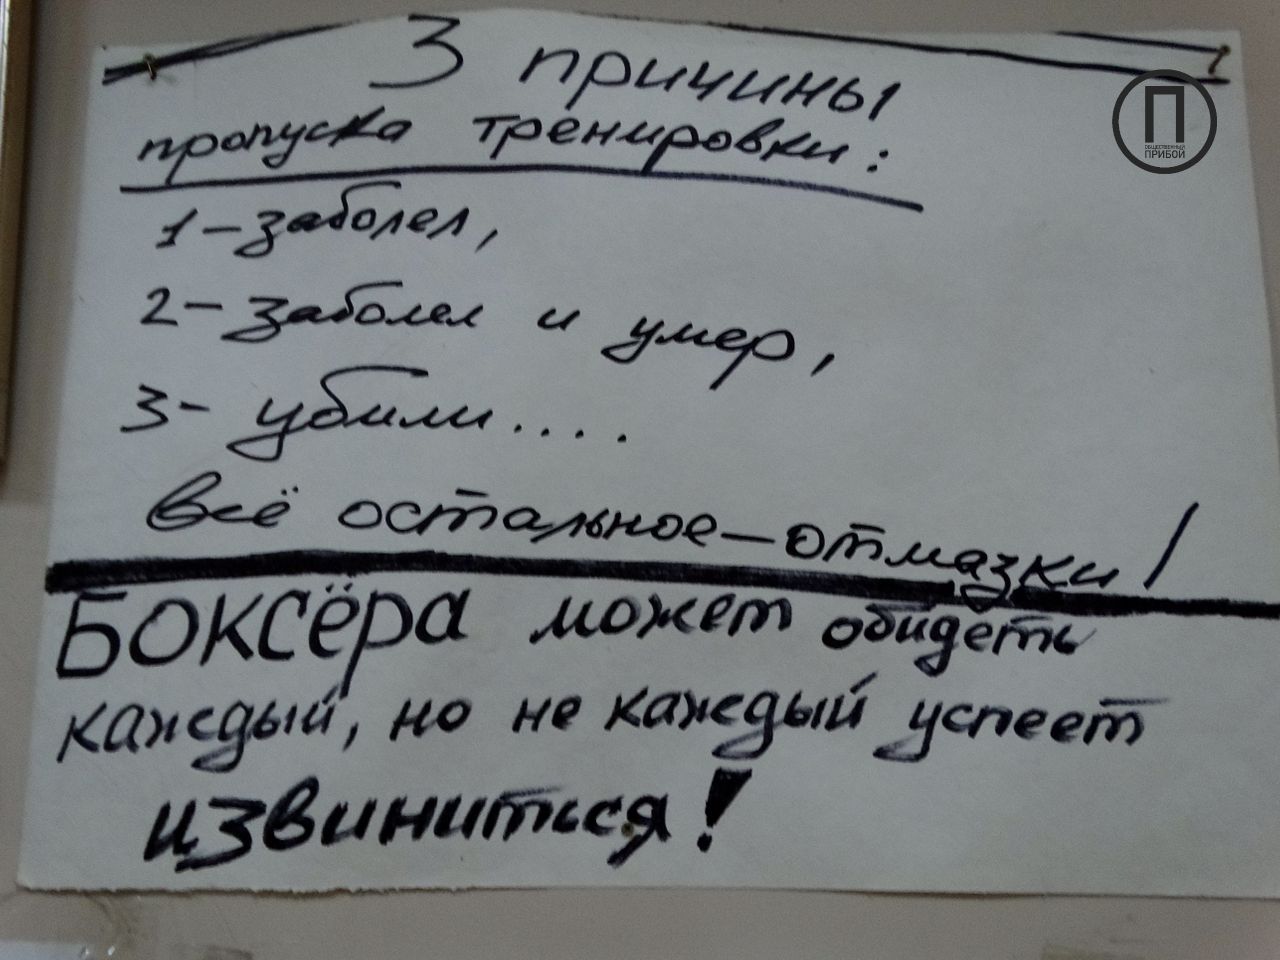 3 причины
пропуска тренировки:
1-заболел,
2-заболел и умер,
3-убили....
всё остальное-отмазки!
Боксёра может обидеть
каждый, но не каждый успеет
извиниться!
П
ОБЩЕСТВЕННЫЙ
ПРИБОЙ